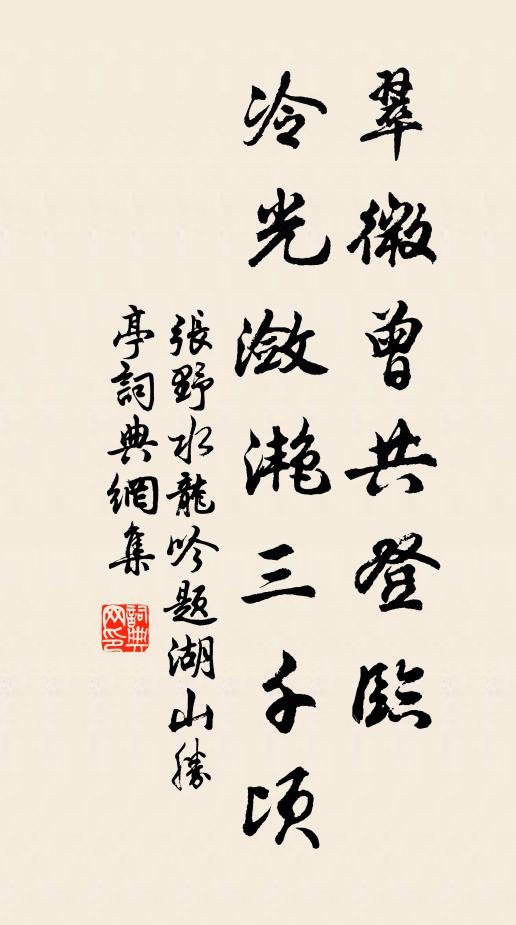 翠微曾共登臨
冷光瀲灧三千頃
張野水龍吟題湖山勝
亭詞典網集
詞典網印